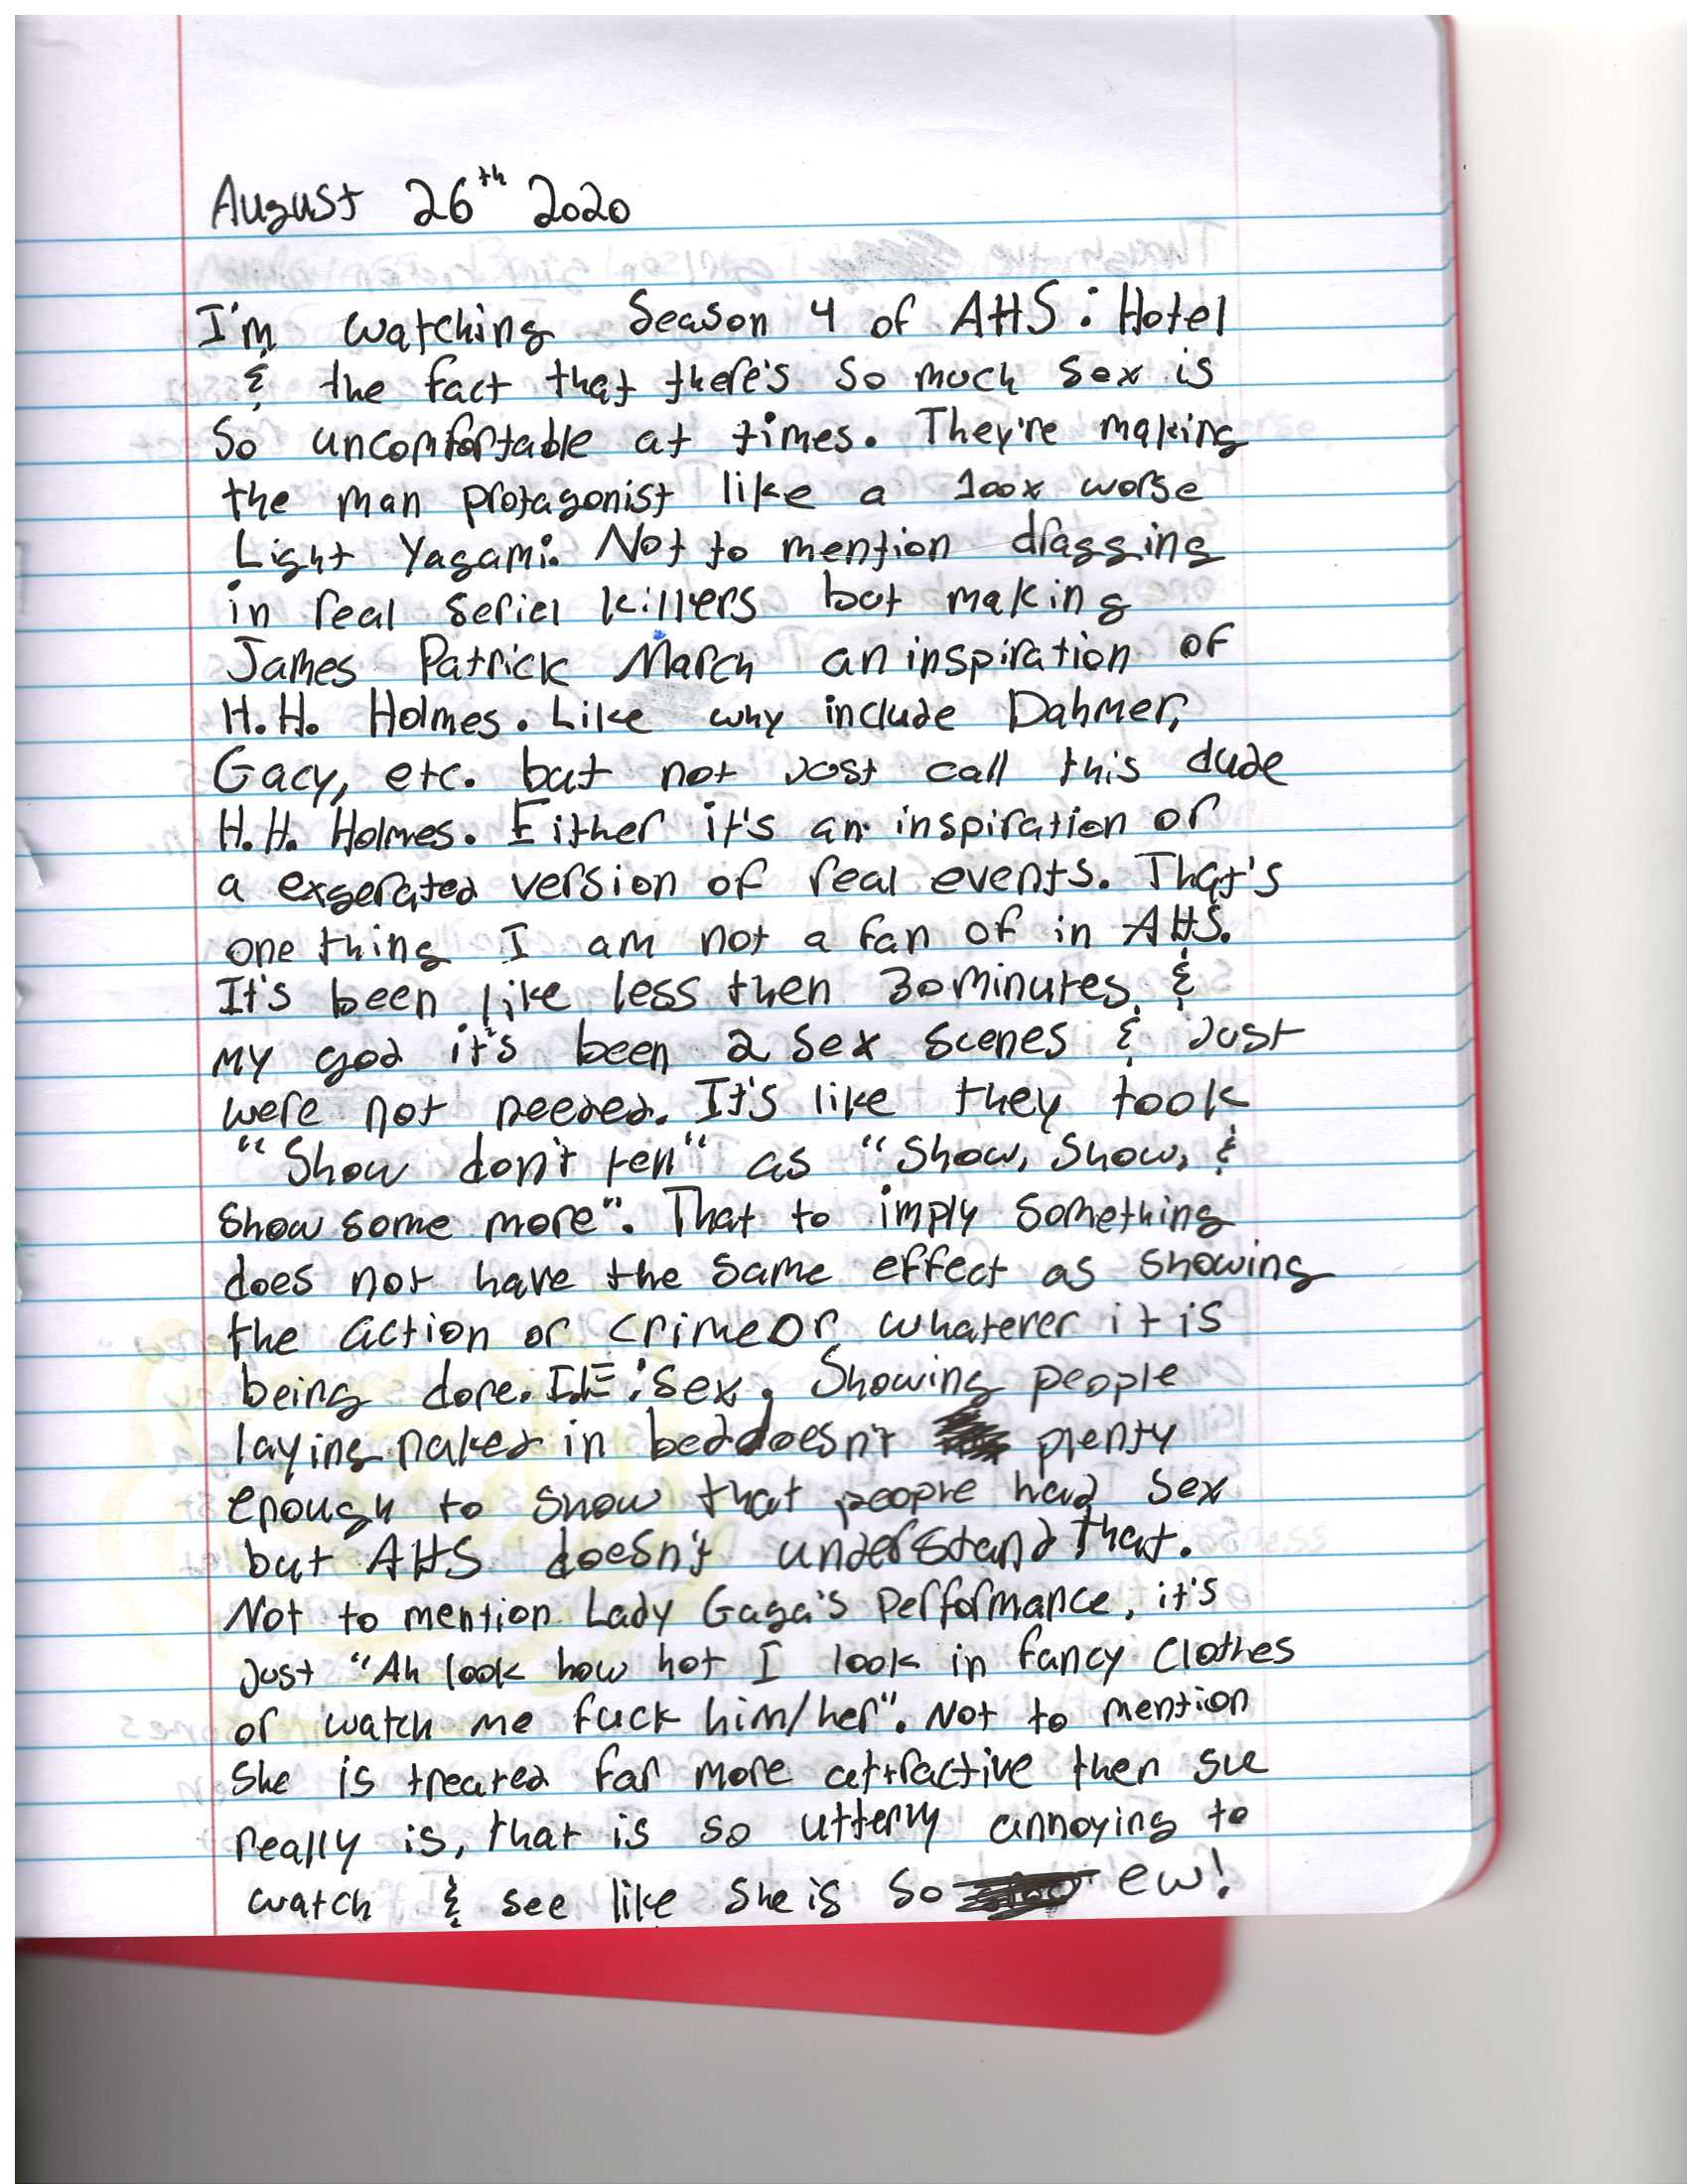 August 26th 2020
I'm watching Season 4 of AHS: Hotel
& the fact that there's so much sex is
so uncomfortable at times. They're making
the man protagonist like a 100x worse
Light Yagami. Not to mention dragging
in real seriel killers but making
James Patrick March an inspiration of
H.H. Holmes. Like why include Dahmer,
Gacy, etc. but not just call this dude
H.H. Holmes. Either it's an inspiration or
a exgerated version of real events. That's
one thing I am not a fan of in AHS.
It's been like less then 30 minutes &
my god it's been 2 sex scenes & just
were not needed. It's like they took
"Show don't tell" as "Show, Show, &
show some more". That to imply something
does not have the same effect as showing
the action or crime or whatever it is
being done. I.E: Sex, Showing people
laying naked in bed doesn't plenty
enough to show that people had sex
but AHS doesn't understand that.
Not to mention Lady Gaga's performance, it's
just "Ah look how hot I look in fancy clothes
or watch me fuck him/her". Not to mention
she is treated far more attractive then she
really is, that is so utterly annoying to
watch & see like she is so ew!